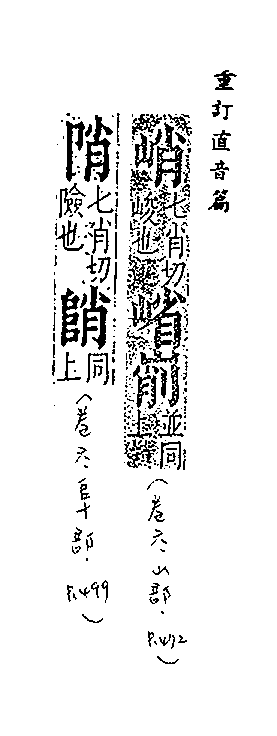 重訂直音篇
峭 七肖切
峻也 並同
上
（卷六山部．P.472）
陗 七肖切
險也 同
上
（卷六𨸏部．P.499）